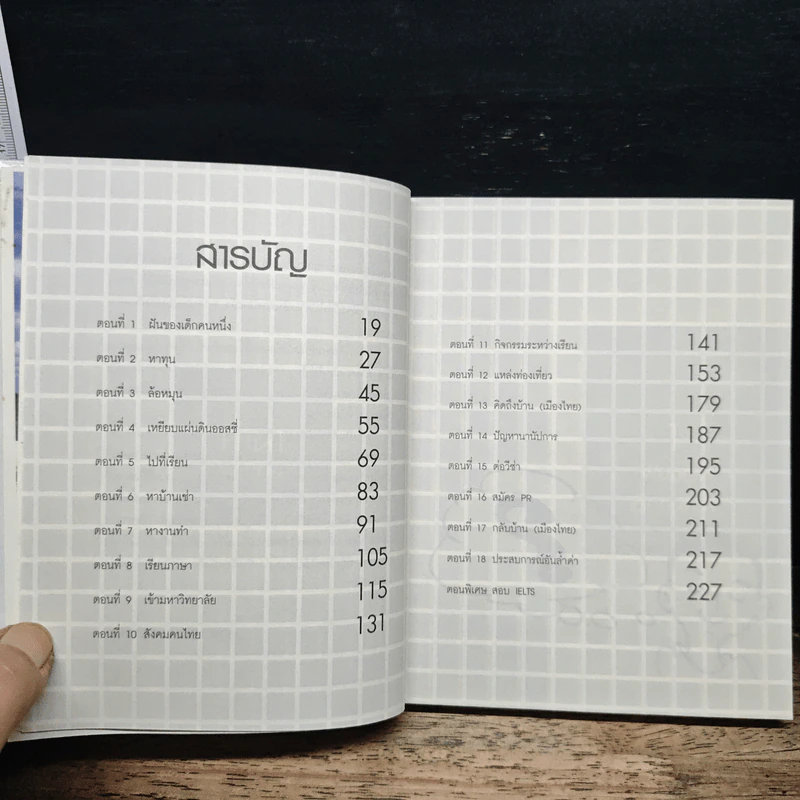 สารบัญ
ตอนที่ 1 ฝันของเด็กคนหนึ่ง 19
ตอนที่ 2 หาทุน 27
ตอนที่ 3 ล้อหมุน 45
ตอนที่ 4 เหยียบแผ่นดินออสซี่ 55
ตอนที่ 5 ไปที่เรียน 69
ตอนที่ 6 หาบ้านเช่า 83
ตอนที่ 7 หางานทำ 91
ตอนที่ 8 เรียนภาษา 105
ตอนที่ 9 เข้ามหาวิทยาลัย 115
ตอนที่ 10 สังคมคนไทย 131
ตอนที่ 11 กิจกรรมระหว่างเรียน 141
ตอนที่ 12 แหล่งท่องเที่ยว 153
ตอนที่ 13 คิดถึงบ้าน (เมืองไทย) 179
ตอนที่ 14 ปัญหานานัปการ 187
ตอนที่ 15 ต่อวีซ่า 195
ตอนที่ 16 สมัคร PR 203
ตอนที่ 17 กลับบ้าน (เมืองไทย) 211
ตอนที่ 18 ประสบการณ์อันล้ำค่า 217
ตอนพิเศษ สอบ IELTS 227